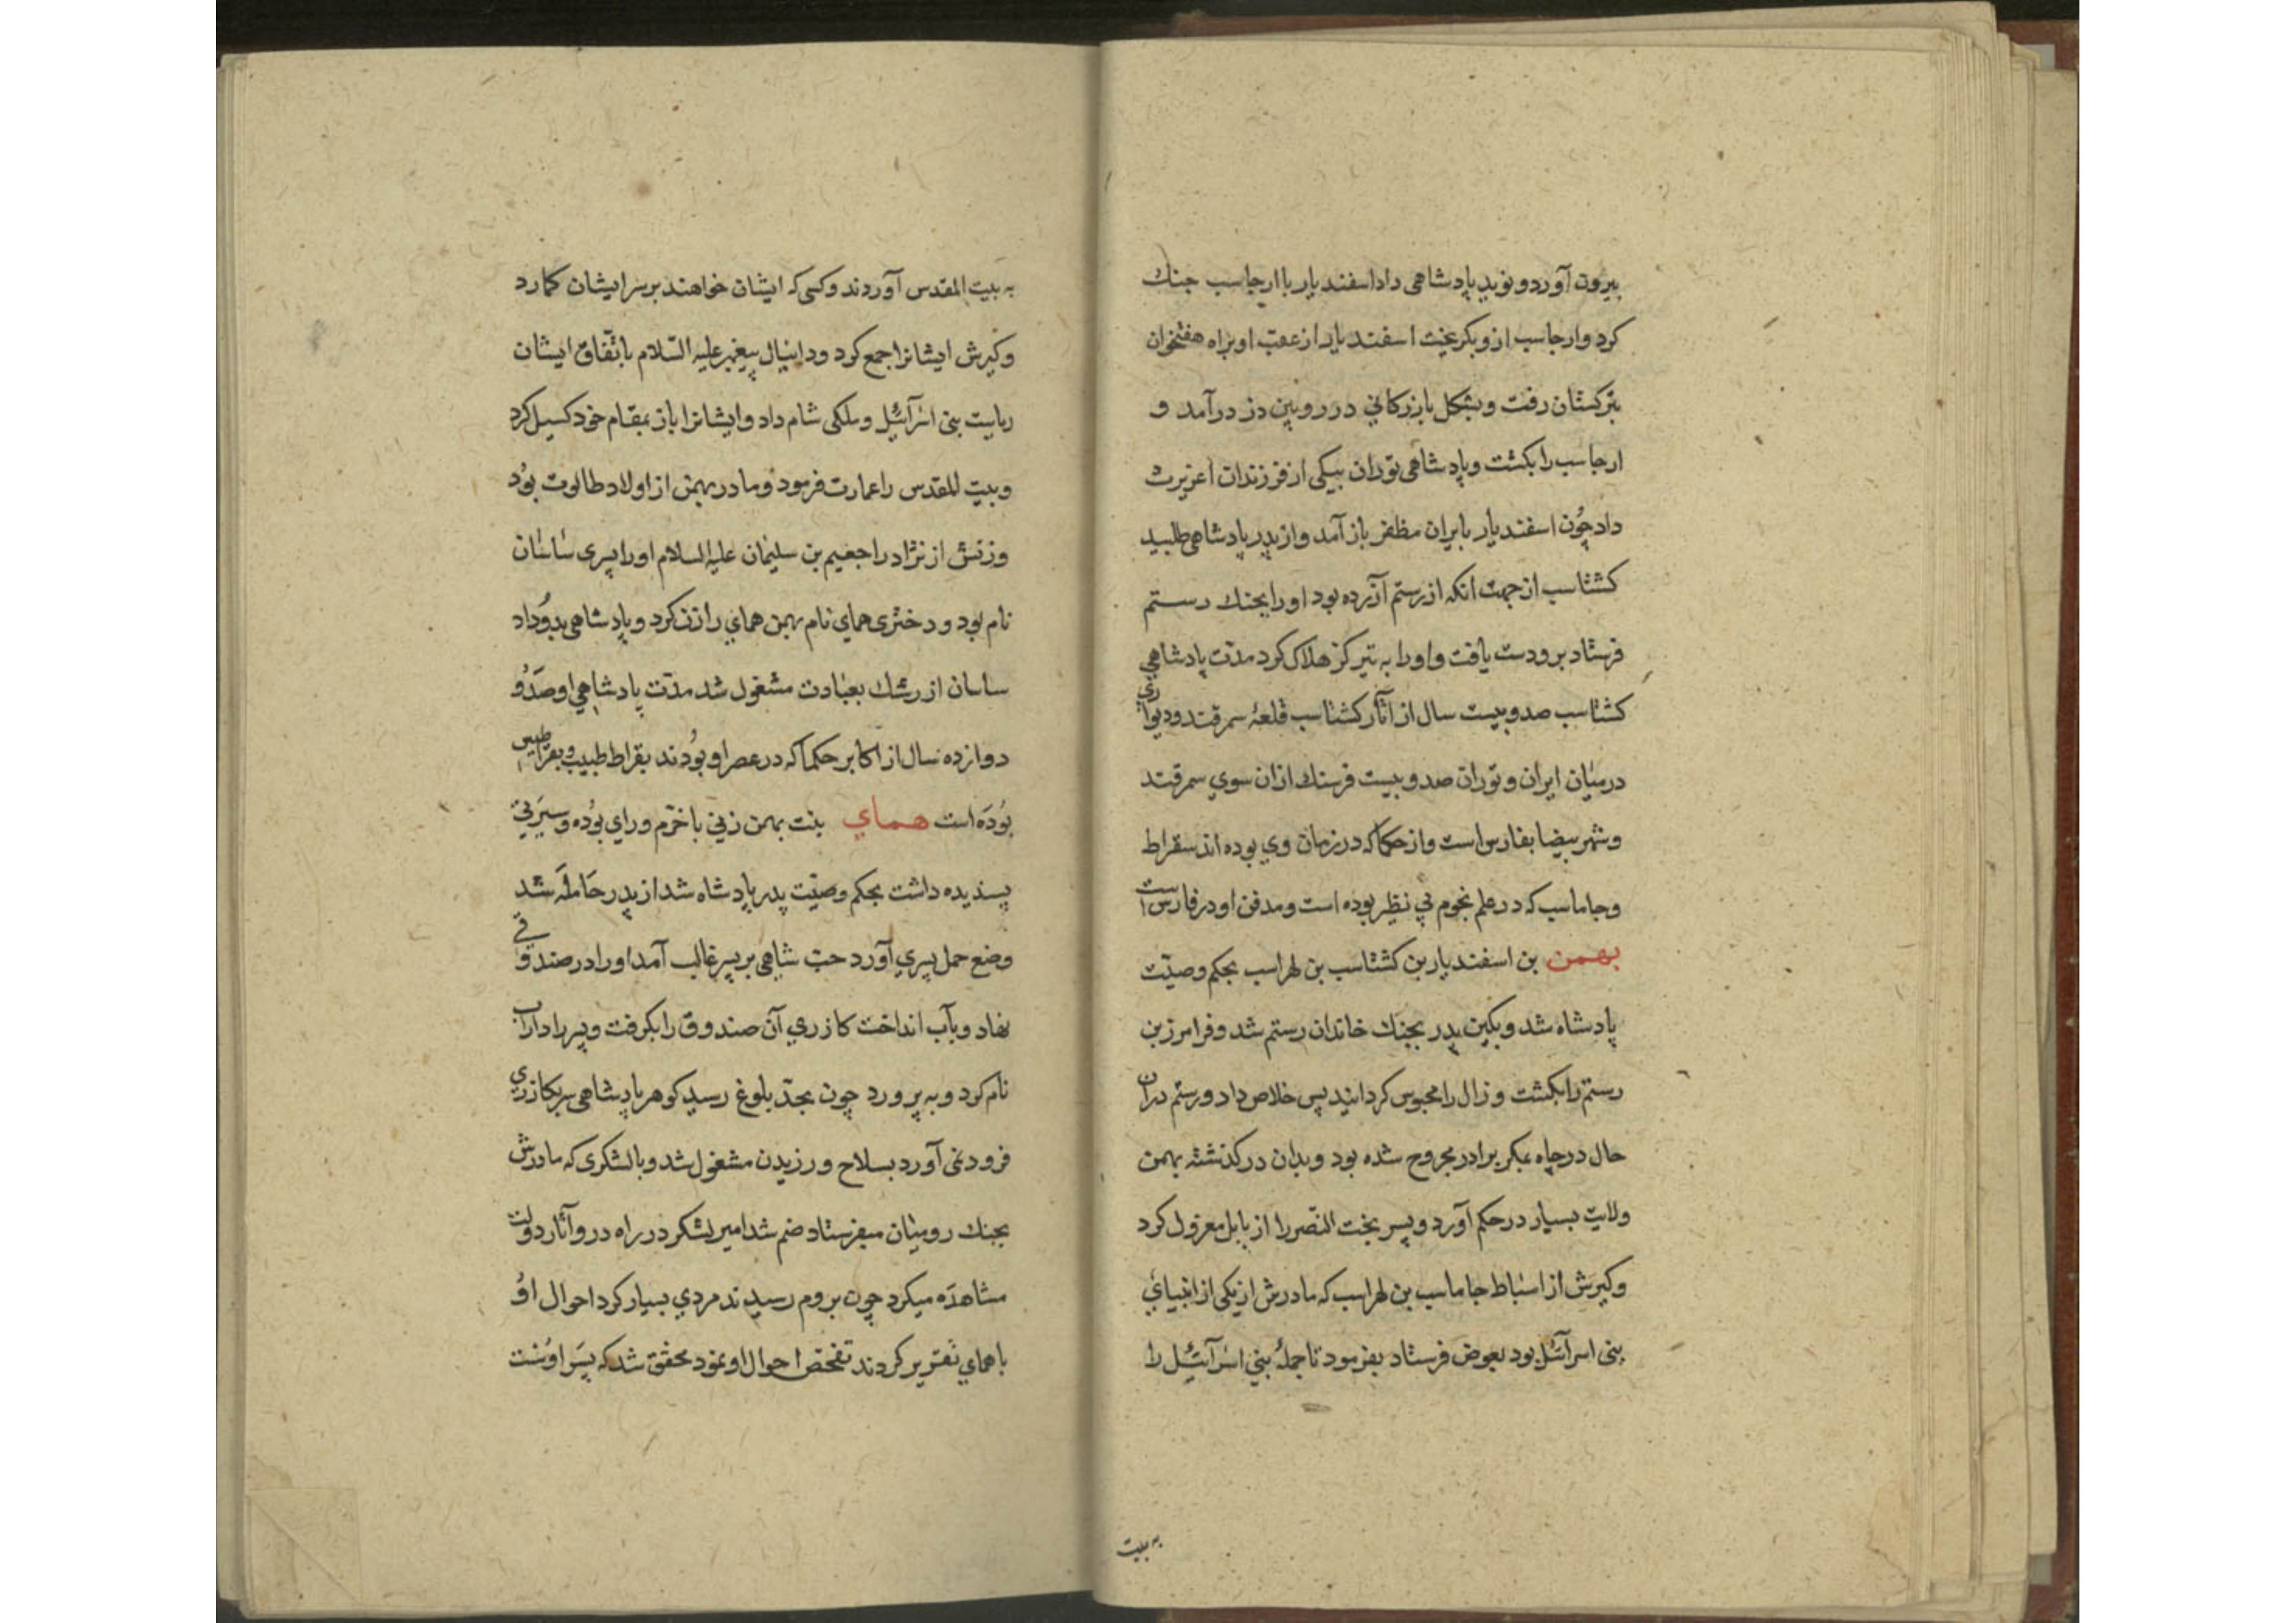 بیرون آورد و نوید پادشاهی داد اسفندیار با ارجاسب جنك
کرد و ارجاسب ازو بکریخت اسفندیار از عقب او براه هفتخوان
بترکستان رفت و بشکل بازرکانی در رویین دز درآمد و
ارجاسب را بکشت و پادشاهی توران بیکی از فرزندان اغریرث
داد چون اسفندیار بایران مظفر باز آمد و از پدر پادشاهی طلبید
کشتاسب از جهت انکه از رستم آزرده بود او را بجنك رستم
فرستاد برو دست یافت و او را به تیر کز هلاک کرد مدت پادشاهی
کشتاسب صد و بیست سال از آثار کشتاسب قلعهٔ سمرقند و دیواری
درمیان ایران و توران صد و بیست فرسنك ازان سوی سمرقند
و شهر بیضا بفارس است و از حکما که در زمان وی بوده اند سقراط
و جاماسب که در علم نجوم بی نظیر بوده است و مدفن او در فارس است
بهمن بن اسفندیار بن کشتاسب بن لهراسب بحکم وصیّت
پادشاه شد و بکین پدر بجنك خاندان رستم شد و فرامرز بن
رستم را بکشت و زال را محبوس کردانید پس خلاص داد و رستم دران
حال در چاه بمکر برادر مجروح شده بود و بدان درکذشته بهمن
ولایت بسیار در حکم آورد و پسر بخت النّصر را از بابل معزول کرد
و کیرش از اسباط جاماسب بن لهراسب که مادرش از یکی از انبیای
بنی اسرآئیل بود بعوض فرستاد بفرمود تا جملهٔ بنی اسرآئیل را
به بیت
به بیت المقدس آوردند و کسی که ایشان خواهند بر سر ایشان کمارد
و کیرش ایشانرا جمع کرد و دانیال پیغمبر علیه السّلام باتّفاق ایشان
ریاست بنی اسرآئیل و ملکی شام داد و ایشانرا باز بمقام خود کسیل کرد
و بیت المقدس را عمارت فرمود و مادر بهمن از اولاد طالوت بود
و زنش از نژاد راجعیم بن سلیمان علیه السلام او را پسری ساسان
نام بود و دختری همای نام بهمن همای را زن کرد و پادشاهی بدو داد
ساسان از رشك بعبادت مشغول شد مدّت پادشاهی او صد و
دوازده سال از اکابر حکما که در عصر او بودند بقراط طبیب و بقراطیس
بوده است همای بنت بهمن زنی با حزم و رای بوده و سیرتی
پسندیده داشت بحکم وصیّت پدر پادشاه شد از پدر حامله شد
وضع حمل پسری آورد حبّ شاهی بر پسر غالب آمد او را در صندوقی
نهاد و بآب انداخت کازری آن صندوق را بکرفت و پسر را داراب
نام کرد و به پرورد چون بحدّ بلوغ رسید کوهر پادشاهی سر بکازری
فرود نمی آورد بسلاح ورزیدن مشغول شد و با لشکری که مادرش
بجنك رومیان میفرستاد ضم شد امیر لشکر در راه درو آثار دولت
مشاهده میکرد چون بروم رسیدند مردی بسیار کرد احوال او
با همای تقریر کردند تفحّص احوال او نمود محقق شد که پسر اوست